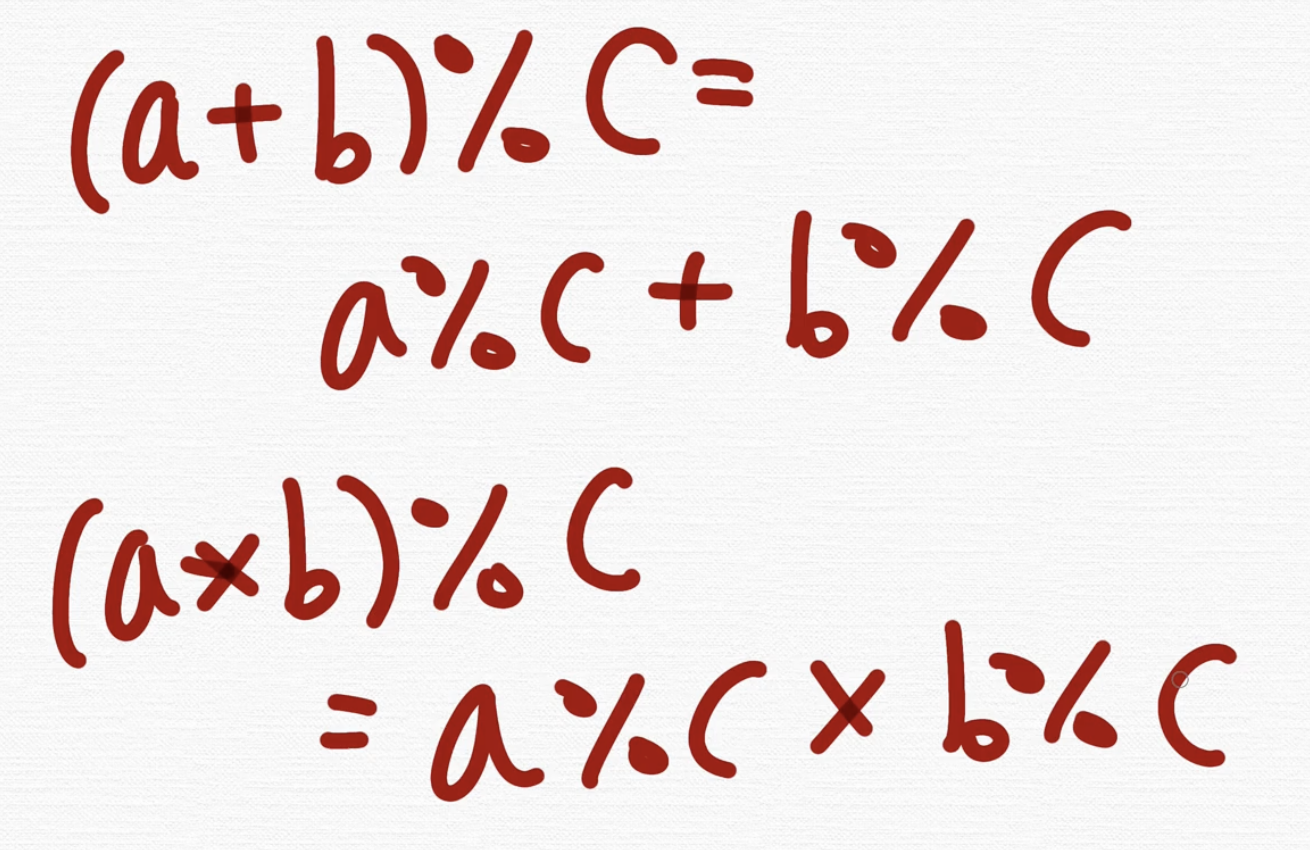 (a+b)%C=
a%C + b%C
(a×b)%C
= a%C × b%C